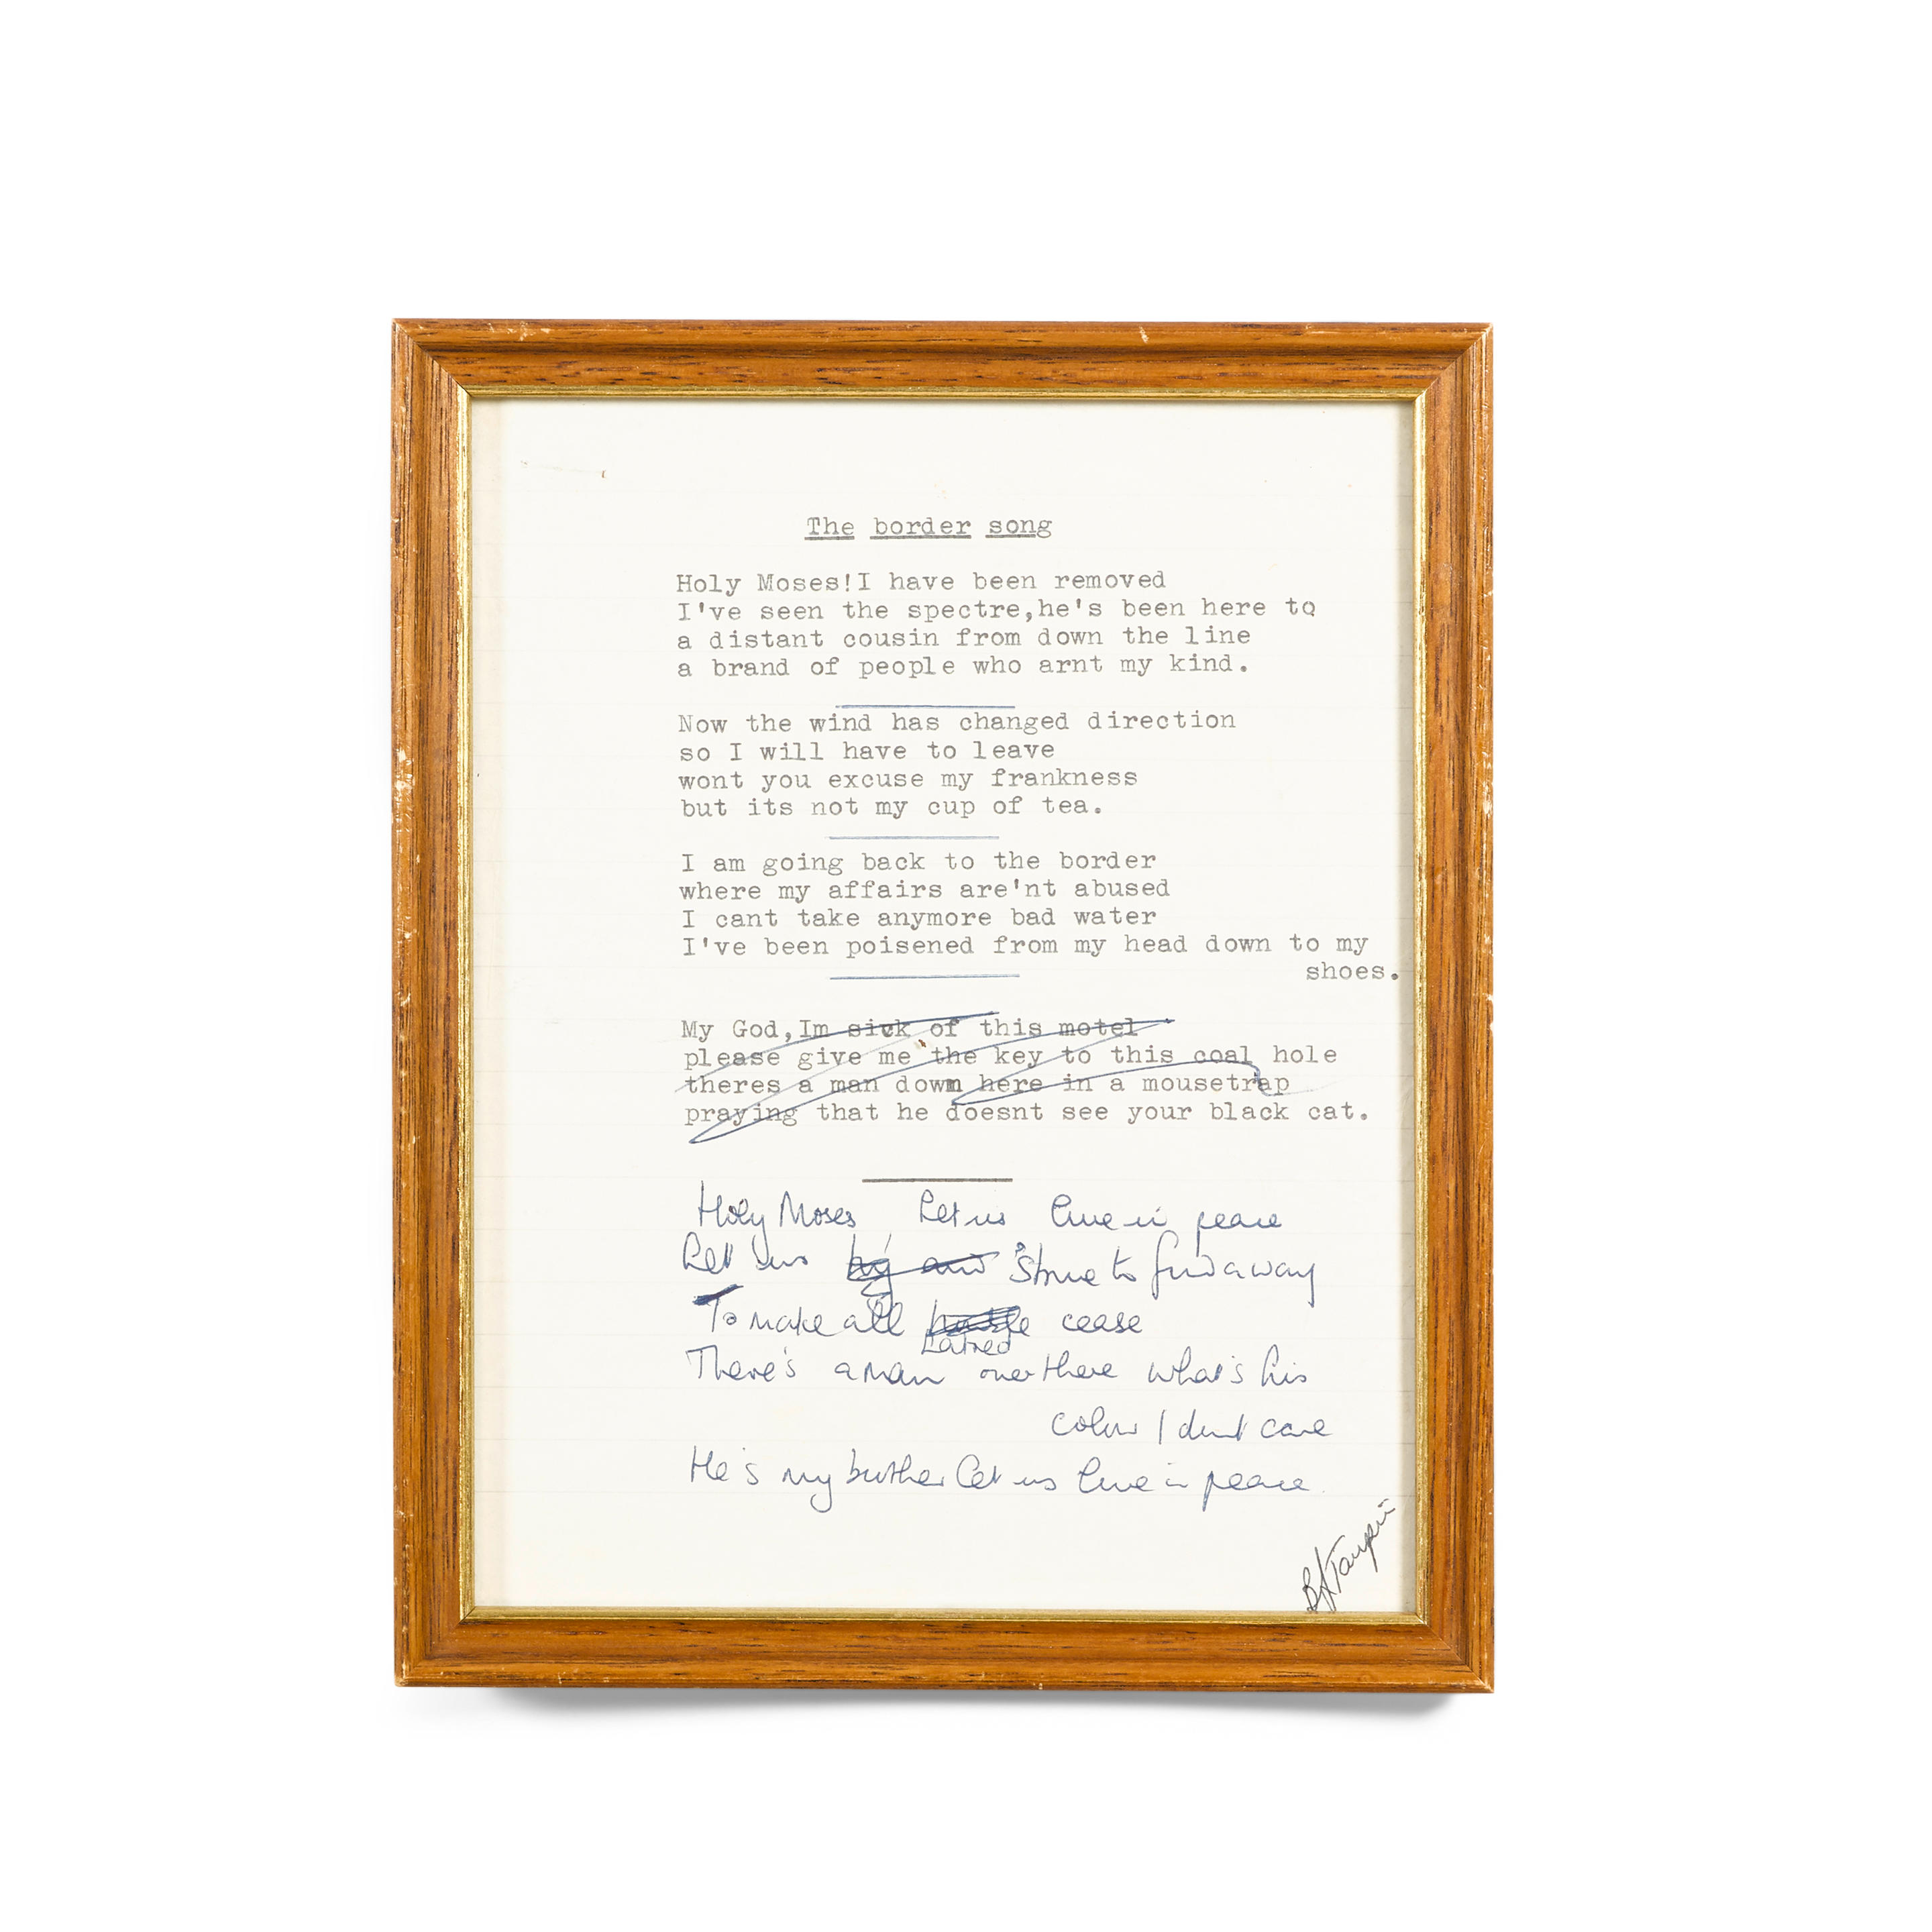 The border song
Holy Moses!I have been removed
I've seen the spectre,he's been here to
a distant cousin from down the line
a brand of people who arnt my kind.
Now the wind has changed direction
so I will have to leave
wont you excuse my frankness
but its not my cup of tea.
I am going back to the border
where my affairs are'nt abused
I cant take anymore bad water
I've been poisened from my head down to my
shoes.
My God,Im sick of this motel
please give me the key to this coal hole
theres a man down here in a mousetrap
praying that he doesnt see your black cat.
Holy Moses Let us live in peace
Let us strive to find a way
To make all cease
hatred
There's a man over there what's his
colour I dont care
He's my brother let us live in peace
BJTaupin